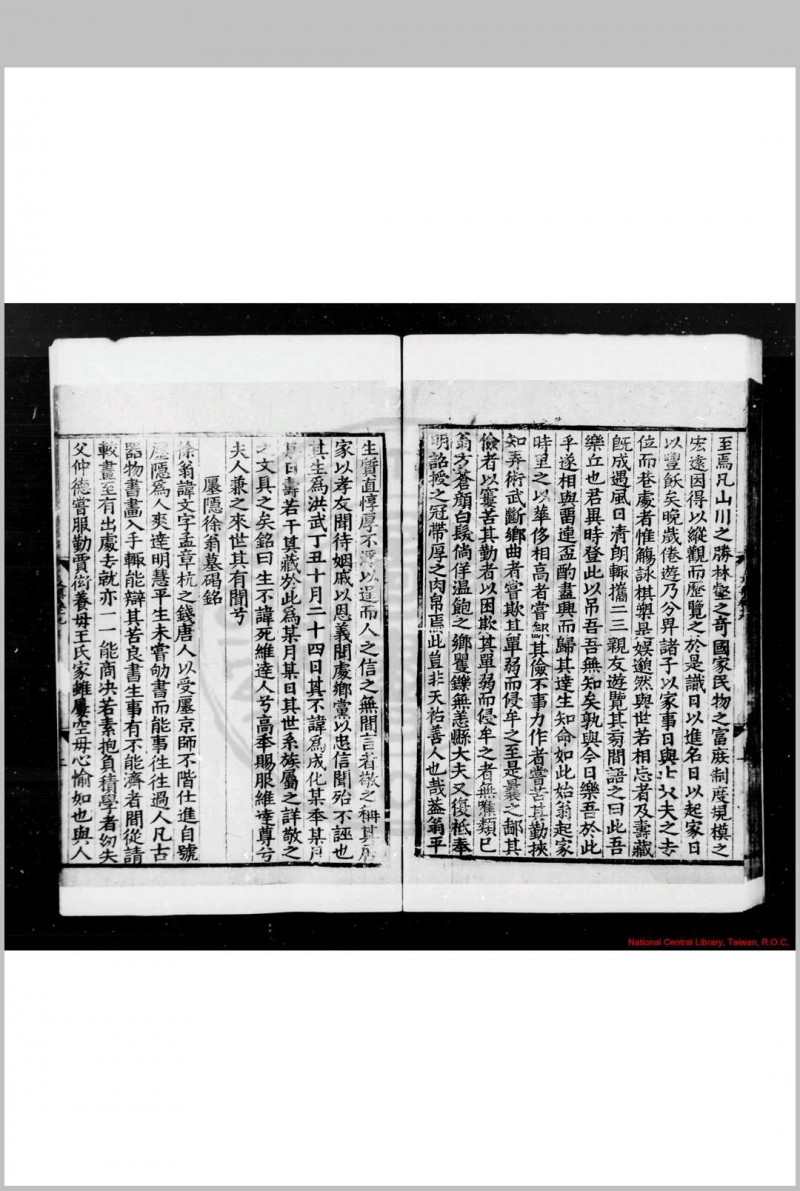 至焉凡山川之勝林壑之奇國家民物之富庶制度規模之
宏遠因得以縱觀而歷覽之於是識日以進名日以起家日
以豐飫矣晚歲倦遊乃分畀諸子以家事日與士大夫之去
位而巷處者惟觴詠棋槊是娛邈然與世若相忘者及壽藏
既成遇風日清朗輒攜二三親友遊覽其旁間語之曰此吾
樂丘也君異時登此以吊吾吾無知矣孰與今日樂吾於此
乎遂相與留連盃酌盡興而歸其達生知命如此始翁起家
時里之以華侈相高者嘗鄙其儉不事力作者嘗苦其勤挾
知弄術武斷鄉曲者嘗欺其單弱而侵牟之至是曩之鄙其
儉者以窶苦其勤者以困欺其單弱而侵牟之者無噍類已
翁方蒼顏白髮倘佯溫飽之鄉矍鑠無恙縣大夫又復祗奉
明詔授之冠帶厚之肉帛焉此豈非天祐善人也哉蓋翁平
生質直惇厚不浮以進而人之信之無間言者敬之稱其居
家以孝友聞待姻戚以恩義聞處鄉黨以忠信聞殆不誣也
其生為洪武丁丑十月二十四日其不諱為成化某年某月
日壽若干其藏於此為某月某日其世系族屬之詳敬之
之文具之矣銘曰生不諱死維達人兮高奉賜服維達尊兮
夫人兼之來世其有聞兮
屢隱徐翁墓碣銘
徐翁諱文字孟章杭之錢唐人以受廛京師不階仕進自號
屢隱為人爽達明慧平生未嘗劬書而能事往往過人凡古
器物書畫入手輒能辯其苦良書生事有不能濟者間從請
較畫至有出處去就亦一一能商決若素抱負積學者幼失
父仲德嘗服勤賈衒養母王氏家雖屢空母心愉如也與人
National Central Library, Taiwan, R.O.C.